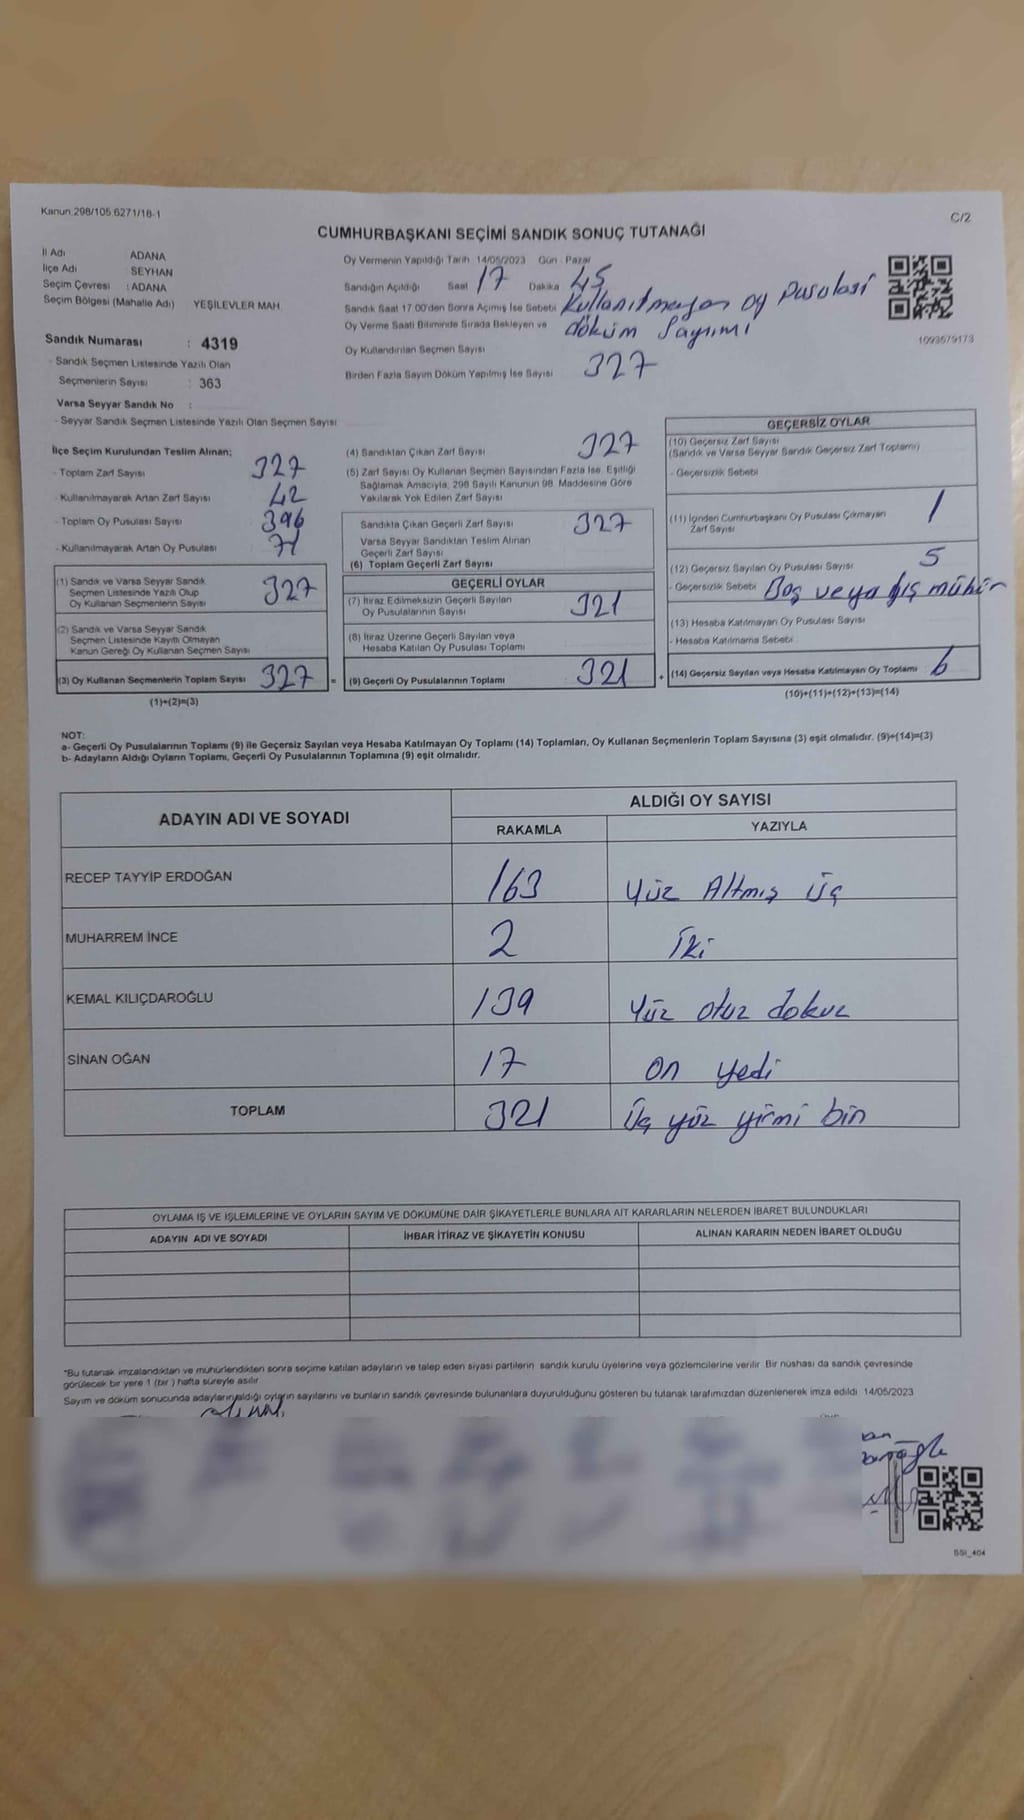 Kanun 298/105 6271/18-1
C/2
CUMHURBAŞKANI SEÇİMİ SANDIK SONUÇ TUTANAĞI
İl Adı ADANA
İlçe Adı SEYHAN
Seçim Çevresi : ADANA
Seçim Bölgesi (Mahalle Adı) YEŞİLEVLER MAH.
Sandık Numarası : 4319
- Sandık Seçmen Listesinde Yazılı Olan
Seçmenlerin Sayısı : 363
Varsa Seyyar Sandık No :
- Seyyar Sandık Seçmen Listesinde Yazılı Olan Seçmen Sayısı
Oy Vermenin Yapıldığı Tarih 14/05/2023 Gün : Pazar
Sandığın Açıldığı Saat 17 Dakika 45
Sandık Saat 17.00'den Sonra Açımış İse Sebebi Kullanılmayan oy Pusulası
Oy Verme Saati Bitiminde Sırada Bekleyen ve döküm Sayımı
Oy Kullandırılan Seçmen Sayısı
Birden Fazla Sayım Döküm Yapılmış İse Sayısı 327
1093679173
İlçe Seçim Kurulundan Teslim Alınan;
- Toplam Zarf Sayısı 327
- Kullanılmayarak Artan Zarf Sayısı 42
- Toplam Oy Pusulası Sayısı 396
- Kullanılmayarak Artan Oy Pusulası 71
(1) Sandık ve Varsa Seyyar Sandık
Seçmen Listesinde Yazılı Olup
Oy Kullanan Seçmenlerin Sayısı 327
(2) Sandık ve Varsa Seyyar Sandık
Seçmen Listesinde Kayıtlı Olmayan
Kanun Gereği Oy Kullanan Seçmen Sayısı
(3) Oy Kullanan Seçmenlerin Toplam Sayısı 327 =
(1)+(2)=(3)
(4) Sandıktan Çıkan Zarf Sayısı 327
(5) Zarf Sayısı Oy Kullanan Seçmen Sayısından Fazla İse, Eşitliği
Sağlamak Amacıyla, 298 Sayılı Kanunun 98. Maddesine Göre
Yakılarak Yok Edilen Zarf Sayısı
Sandıkta Çıkan Geçerli Zarf Sayısı 327
Varsa Seyyar Sandıktan Teslim Alınan
Geçerli Zarf Sayısı
(6) Toplam Geçerli Zarf Sayısı
GEÇERLİ OYLAR
(7) İtiraz Edilmeksizin Geçerli Sayılan
Oy Pusulalarının Sayısı 321
(8) İtiraz Üzerine Geçerli Sayılan veya
Hesaba Katılan Oy Pusulası Toplamı
(9) Geçerli Oy Pusulalarının Toplamı 321 +
GEÇERSİZ OYLAR
(10) Geçersiz Zarf Sayısı
(Sandık ve Varsa Seyyar Sandık Geçersiz Zarf Toplamı)
- Geçersizlik Sebebi
(11) İçinden Cumhurbaşkanı Oy Pusulası Çıkmayan
Zarf Sayısı 1
(12) Geçersiz Sayılan Oy Pusulası Sayısı 5
- Geçersizlik Sebebi Boş veya dış mühür
(13) Hesaba Katılmayan Oy Pusulası Sayısı
- Hesaba Katılmama Sebebi
(14) Geçersiz Sayılan veya Hesaba Katılmayan Oy Toplamı 6
(10)+(11)+(12)+(13)=(14)
NOT:
a- Geçerli Oy Pusulalarının Toplamı (9) ile Geçersiz Sayılan veya Hesaba Katılmayan Oy Toplamı (14) Toplamları, Oy Kullanan Seçmenlerin Toplam Sayısına (3) eşit olmalıdır. (9)+(14)=(3)
b- Adayların Aldığı Oyların Toplamı, Geçerli Oy Pusulalarının Toplamına (9) eşit olmalıdır.
ADAYIN ADI VE SOYADI ALDIĞI OY SAYISI
RAKAMLA YAZIYLA
RECEP TAYYİP ERDOĞAN 163 Yüz Altmış Üç
MUHARREM İNCE 2 İki
KEMAL KILIÇDAROĞLU 139 Yüz otuz dokuz
SİNAN OĞAN 17 on yedi
TOPLAM 321 Üç yüz yirmi bin
OYLAMA İŞ VE İŞLEMLERİNE VE OYLARIN SAYIM VE DÖKÜMÜNE DAİR ŞİKAYETLERLE BUNLARA AİT KARARLARIN NELERDEN İBARET BULUNDUKLARI
ADAYIN ADI VE SOYADI İHBAR İTİRAZ VE ŞİKAYETİN KONUSU ALINAN KARARIN NEDEN İBARET OLDUĞU
"Bu tutanak imzalandıktan ve mühürlendikten sonra seçime katılan adayların ve talep eden siyasi partilerin sandık kurulu üyelerine veya gözlemcilerine verilir. Bir nüshası da sandık çevresinde
görülecek bir yere 1 (bir ) hafta süreyle asılır.
Sayım ve döküm sonucunda adayların aldığı oyların sayılarını ve bunların sandık çevresinde bulunanlara duyurulduğunu gösteren bu tutanak tarafımızdan düzenlenerek imza edildi 14/05/2023
SSI_404